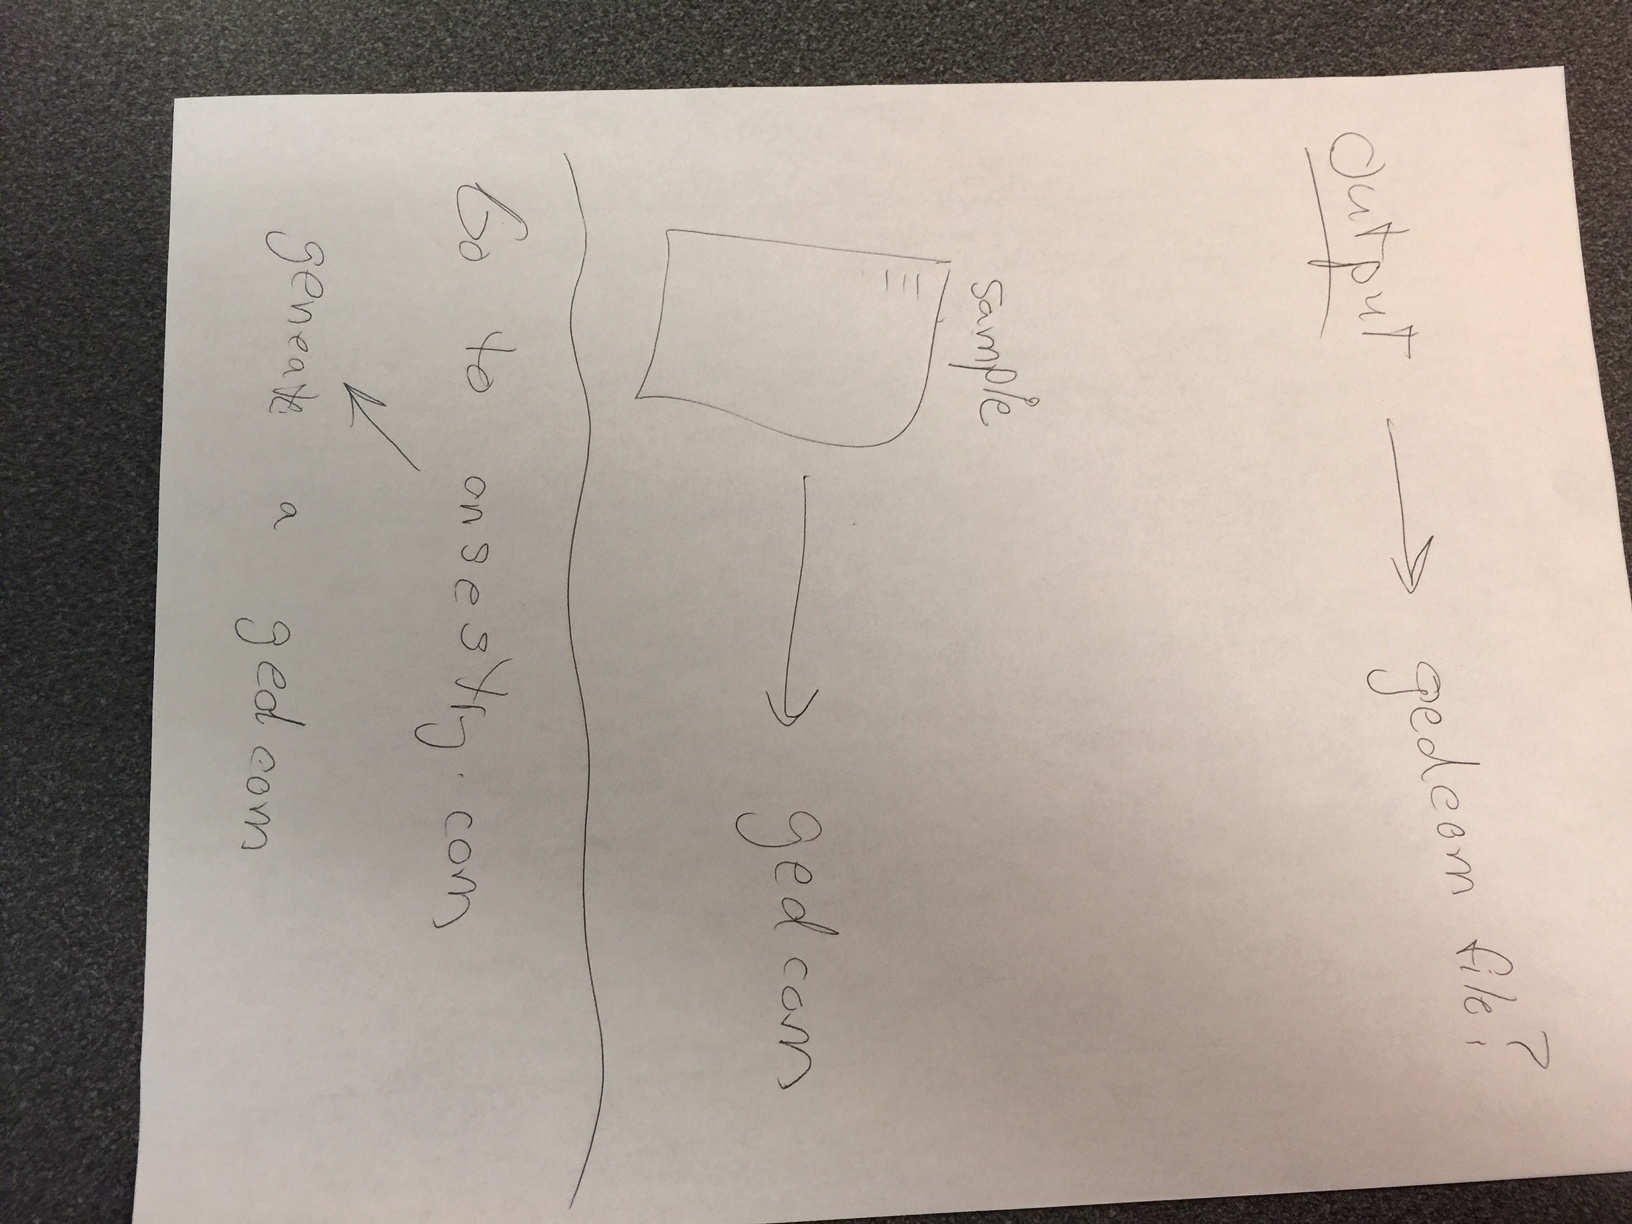 output → gedcom file?
sample
→ gedcom
Go to ansestry.com
geneate a gedcom